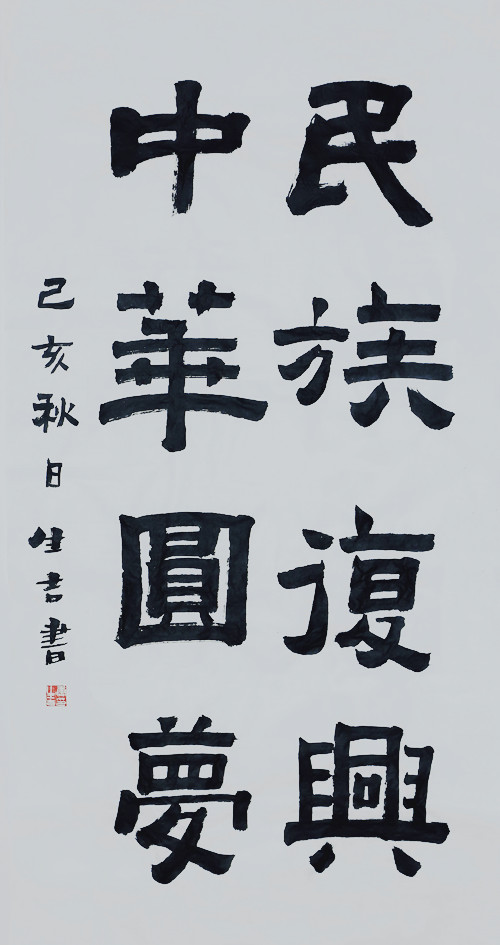 民族復興
中華圓夢
己亥秋日生吉書